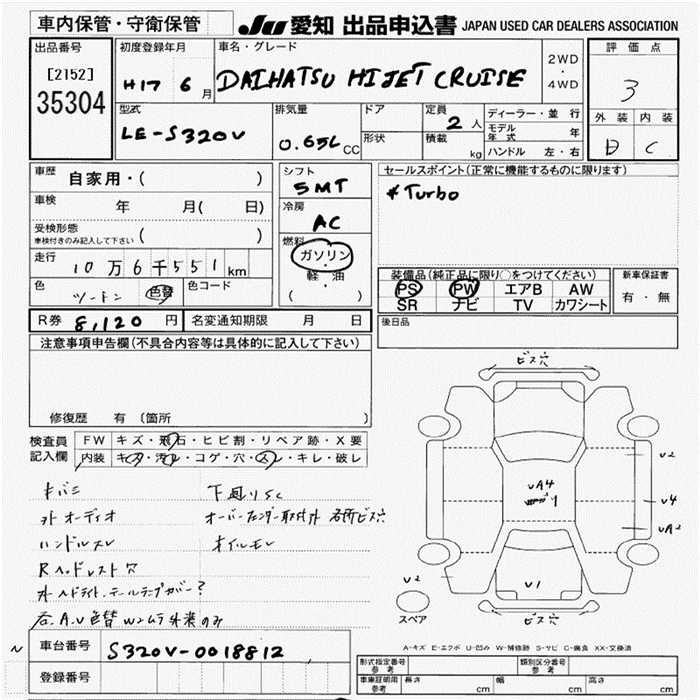 車内保管・守衛保管 JU 愛知 出品申込書 JAPAN USED CAR DEALERS ASSOCIATION
出品番号 初度登録年月 車名・グレード 2WD・4WD 評価点
[2152] H17 6月 DAIHATSU HIJET CRUISE 3
35304
型式 排気量 ドア 定員 ディーラー・並行 外装 内装
LE-S320V 0.65L CC 形状 2人 モデル年式 年 C
積載 kg ハンドル 左・右
車歴 自家用・( ) シフト セールスポイント(正常に機能するものに限ります)
5MT *Turbo
車検 年 月( 日) 冷房
AC
受検形態 ( )
車検付きのみ記入して下さい
燃料
ガソリン・軽油
( )
走行 10万6千551km
装備品(純正品に限り○をつけてください) 新車保証書
色 ツートン 色替 色コード PS PW エアB AW 有・無
SR ナビ TV カワシート
R券 8,120円 名変通知期限 月 日 後日品
注意事項申告欄(不具合内容等は具体的に記入して下さい)
修復歴 有 (箇所
検査員記入欄 FW キズ・飛石・ヒビ割・リペア跡・X要
内装 キズ・汚れ・コゲ・穴・スレ・キレ・破レ
キバミ 下回りSC
外オーディオ オーバーフェンダー取付外 各所ビス穴
ハンドルスレ オイルモレ
Rヘッドレスト穴
ビス穴
U2
UA4
U4
UA2
U2
U1
スペア
ビス穴
A-キズ E-エクボ U-凹み W-補修跡 S-サビ C-腐食 XX-交換済
車台番号 S320V-0018812
登録番号
形式指定番号 参考 類別区分番号 参考
車庫証明用 参考 長さ cm 幅 cm 高さ cm